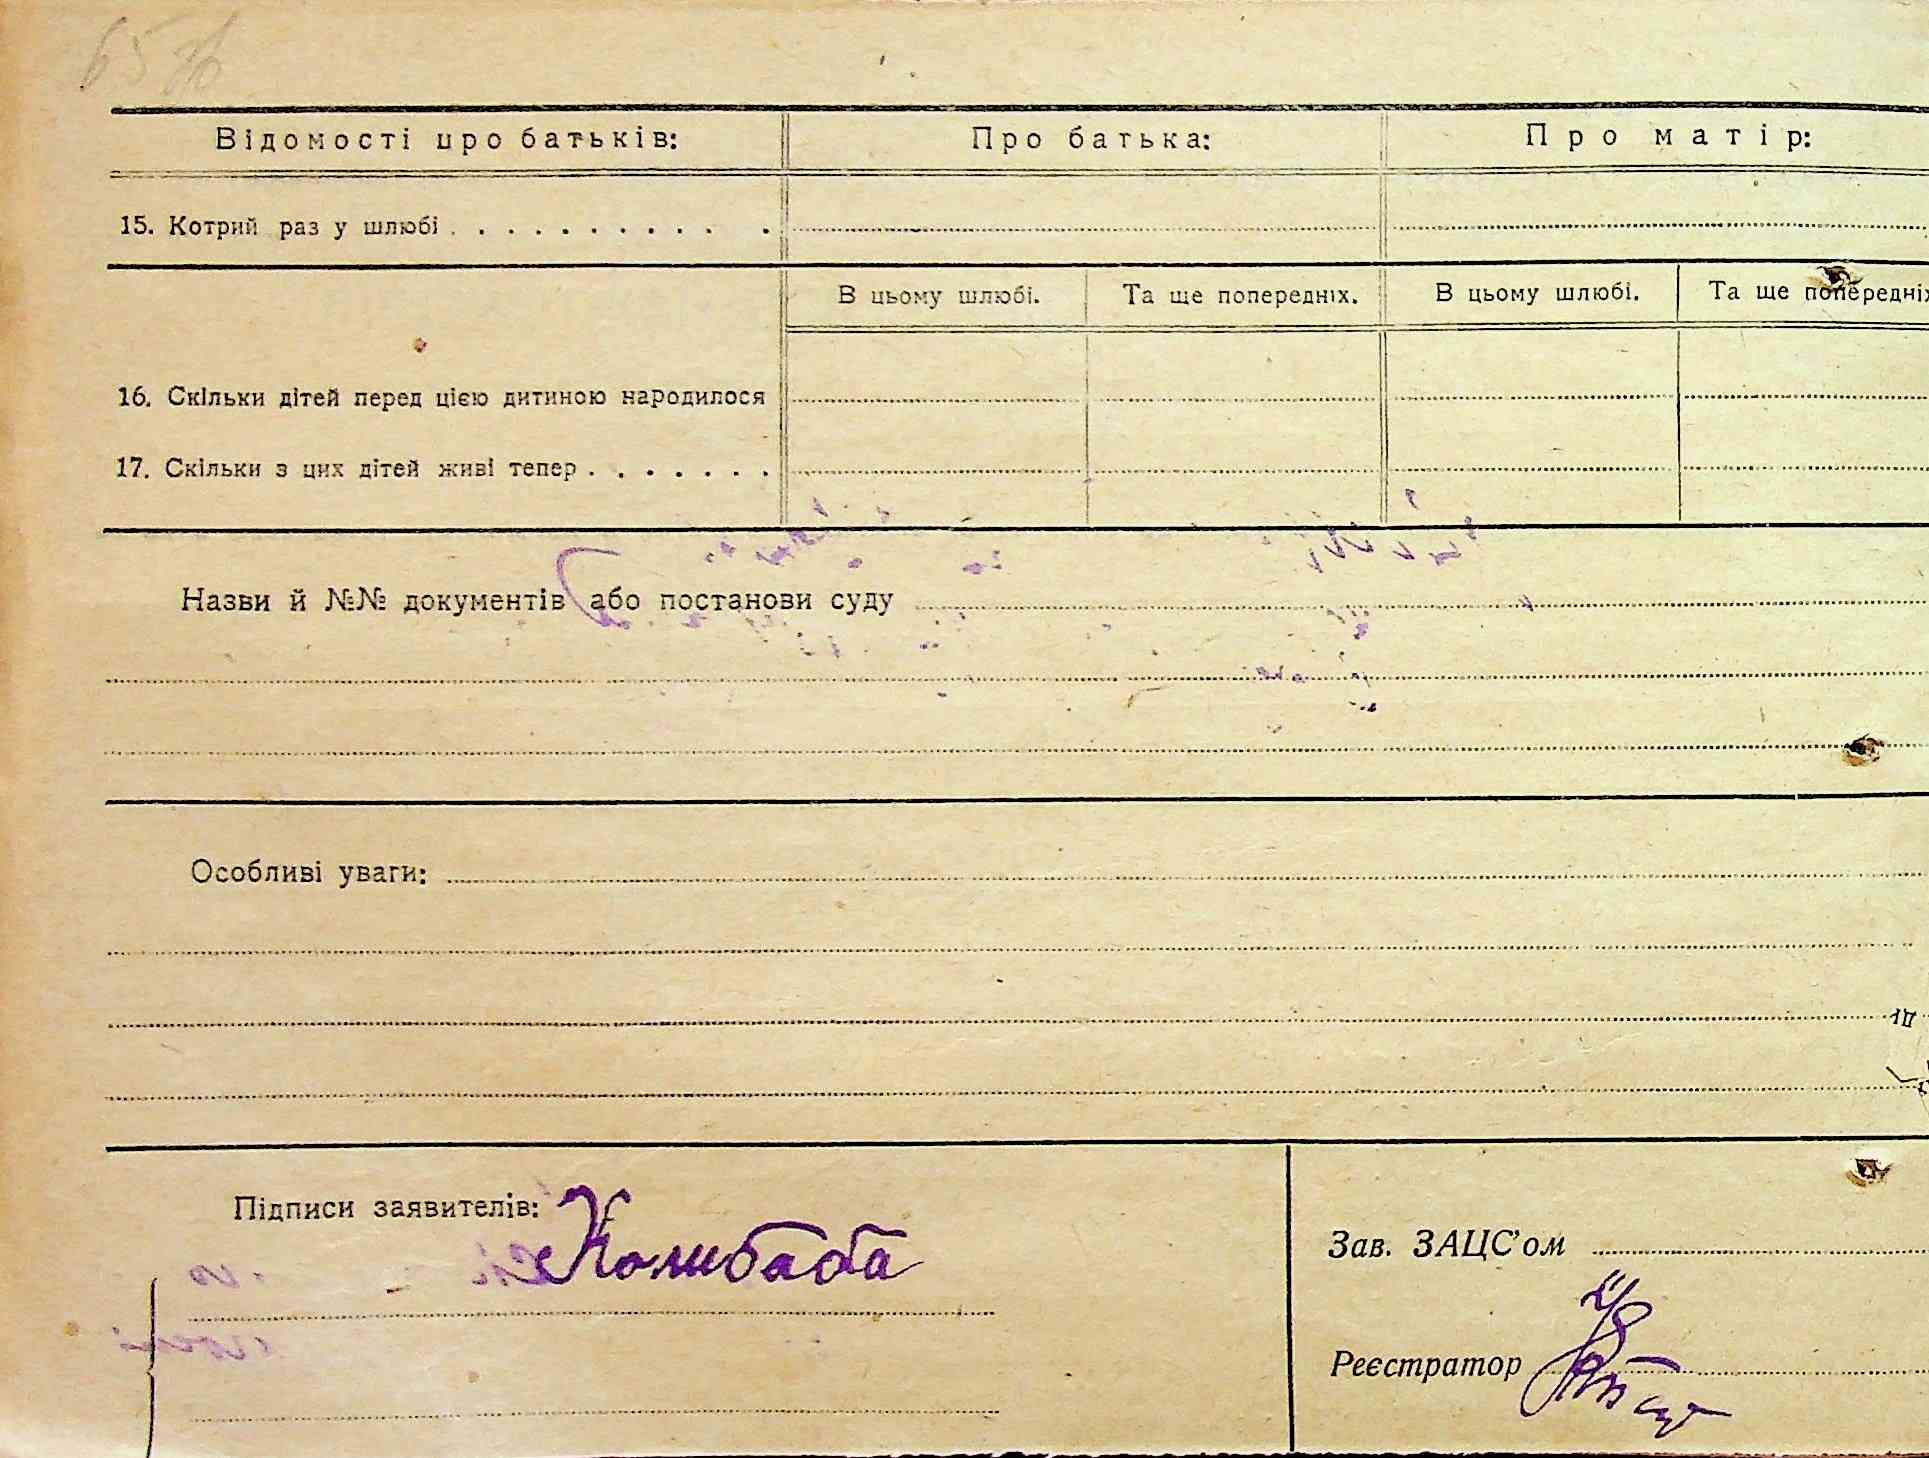 Відомості про батьків: Про батька: Про матір:
15. Котрий раз у шлюбі
В цьому шлюбі. Та ще попередніх. В цьому шлюбі. Та ще попередніх
16. Скільки дітей перед цією дитиною народилося
17. Скільки з цих дітей живі тепер
Назви й №№ документів або постанови суду
Особливі уваги:
Підписи заявителів: Колибаба
Зав. ЗАЦС'ом
Реєстратор